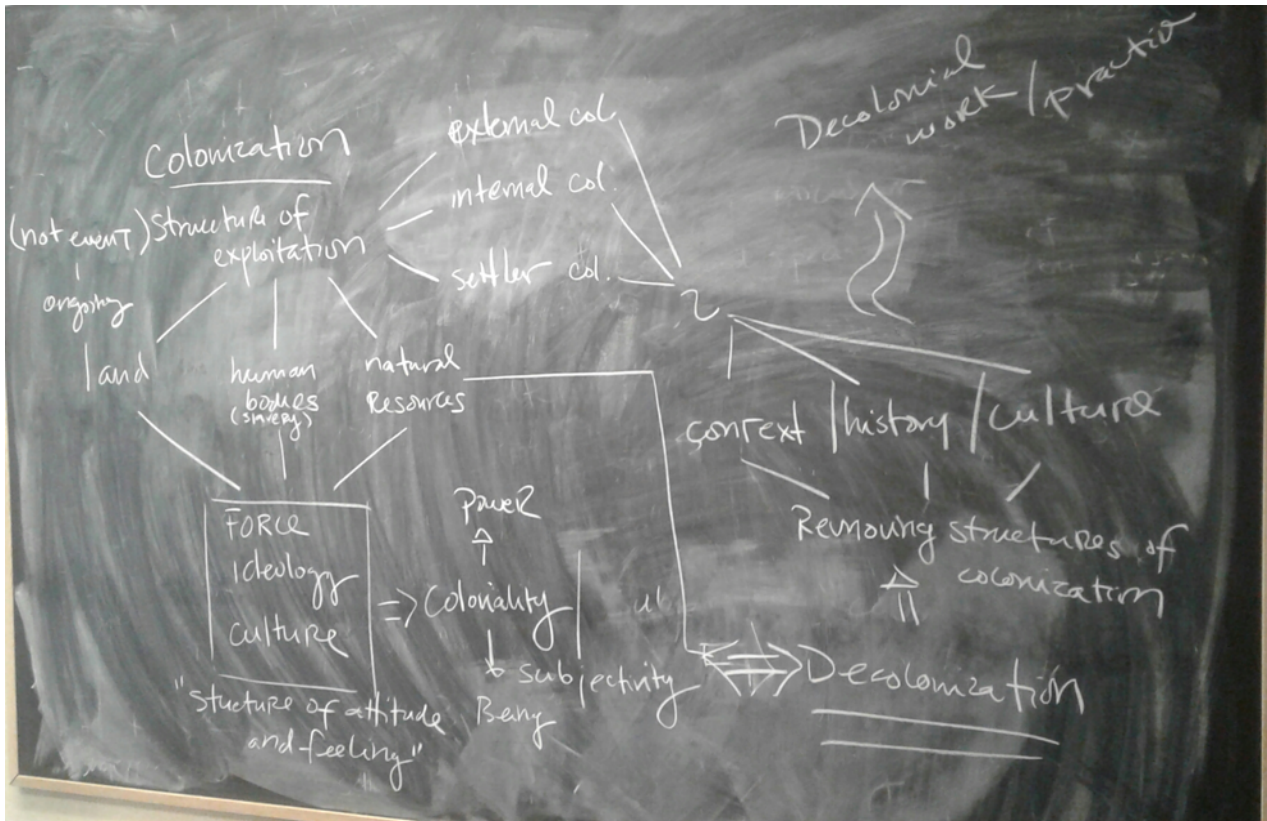 Colonization
(not event) Structure of
exploitation
ongoing
external col.
internal col.
settler col.
land
human
bodies
(slavery)
natural
Resources
FORCE
Ideology
Culture
"Stucture of attitude
and feeling"
=> Coloniality
Power
subjectivity
Being
Decolonial
work / practice
context / history / culture
Removing structures of
colonization
Decolonization